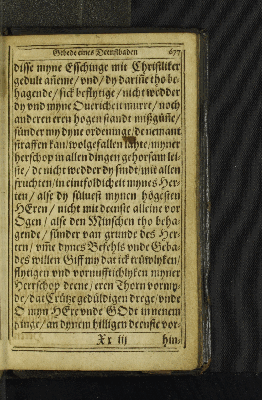 Gebede eines Deenstbaden 677
disse myne Esschinge mit Christliker
gedult anneme / vnd / dy darinne tho be-
hagende / sick beflytige / nicht wedder
dy vnd myne Ouericheit murre / noch
anderen eren hogen standt mißgünne /
sünder my dyne ordeninge / de nemant
straffen kan / wolgefallen lathe / myner
herschop in allen dingen gehorsam lei-
ste / de nicht wedder dy sindt / mit allen
früchten / in eintfoldicheit mynes Her-
ten / alse dy süluest mynen högesten
HEren / nicht mit deenste alleine vor
Ogen / alse den Minschen tho beha-
gende / sünder van grunde des Her-
ten / vmme dynes Befehls vnde Geba-
des willen Giff my dat ick trüwlyken /
flytigen vnd vornufftichlyken myner
Herrschop deene / eren Thorn vormy-
de / dat Crütze gedüldigen drege / vnde
O myn HEre vnde GOde in nenem
dinge / an dynem hilligen deenste vor-
Xx iij hin-